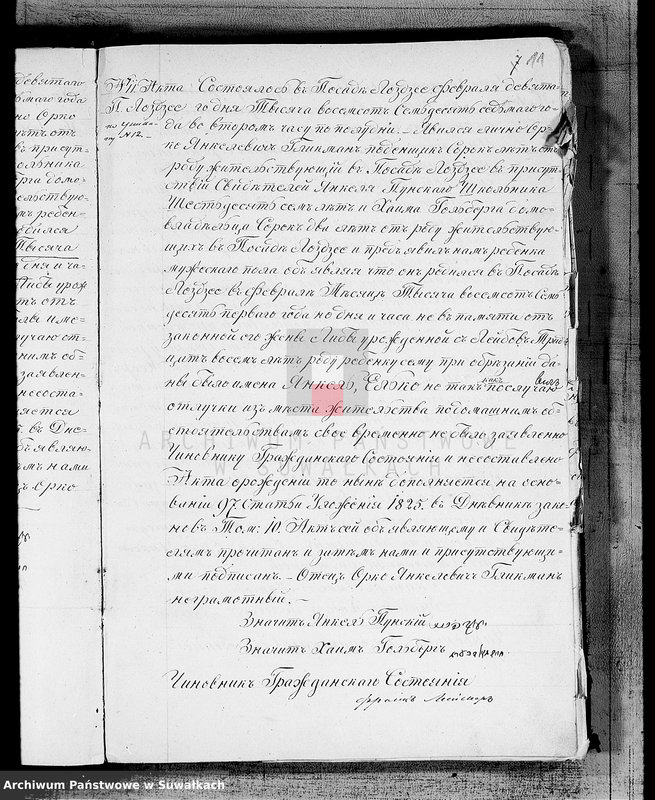 7 11
№ 11 Акта Состоялось въ Посадѣ Лоздзее февраля девята-
П. Лоздзее го дня Тысяча восемсотъ Семьдесятъ седьмаго го-
да во второмъ часу по полудни. – Явился лично Ор-
ко Янкелевичъ Гликманъ поденщикъ Сорокъ лѣтъ отъ
роду жительствующій въ Посадѣ Лоздзее въ присут-
ствіи Свидѣтелей Янкеля Пунскаго Школьника
Шестьдесятъ семь лѣтъ и Хаима Гольберга домо-
владѣльца Сорокъ два лѣтъ отъ роду жительствую-
щихъ въ Посадѣ Лоздзее и предъявилъ намъ ребенка
мужескаго пола объявляя что онъ родился въ Посадѣ
Лоздзее въ февралѣ Мѣсяцѣ Тысяча восемсотъ Семь-
десятъ перваго года но дня и часа не въ памяти отъ
законной его жены Либы урожденной съ Лейбовъ Трид-
цать восемь лѣтъ роду ребенку сему при обрѣзаніи да-
ны было имена Янкель, но такъ какъ послучаю
отлучки изъ мѣста жительства подомашнимъ об-
стоятельствамъ своевременно не было заявлено
Чиновнику Гражданскаго Состоянія и несоставлено
Акта орожденіи то нынѣ дополняется на осно-
ваніи 97. Статьи Уложенія 1825. въ Дневникѣ зако-
новъ Том: 10. Актъ сей объявляющему и Свидѣте-
лямъ прочитанъ и затѣмъ нами и присутствующи-
ми подписанъ. – Отецъ Орко Янкелевичъ Гликманъ
неграмотный. –
Значитъ Янкель Пунскій
Значитъ Хаимъ Гольбергъ
Чиновникъ Гражданскаго Состоянія
ARCHIWUM PAŃSTWOWE
W SUWAŁKACH
Archiwum Państwowe w Suwałkach